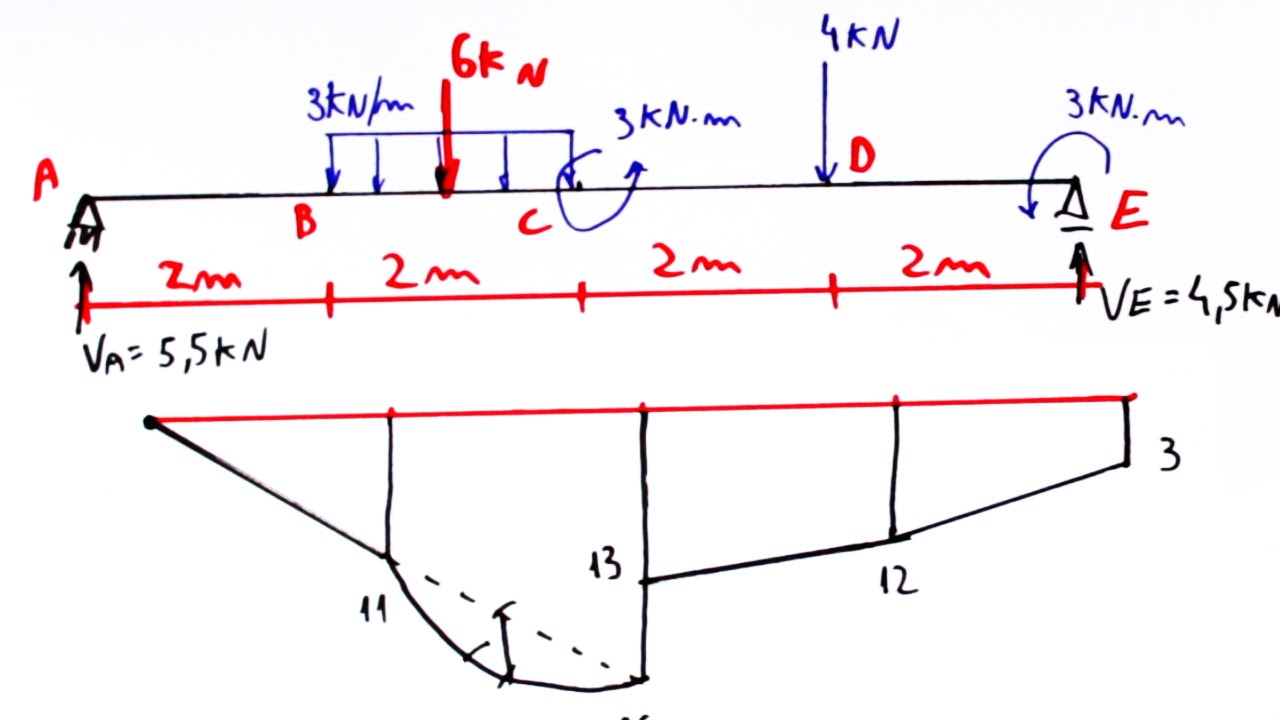 4KN
6KN
3KN/m
3KN.m
3KN.m
A
D
B
C
E
2m
2m
2m
2m
VE = 4,5KN
VA = 5,5KN
3
13
12
11